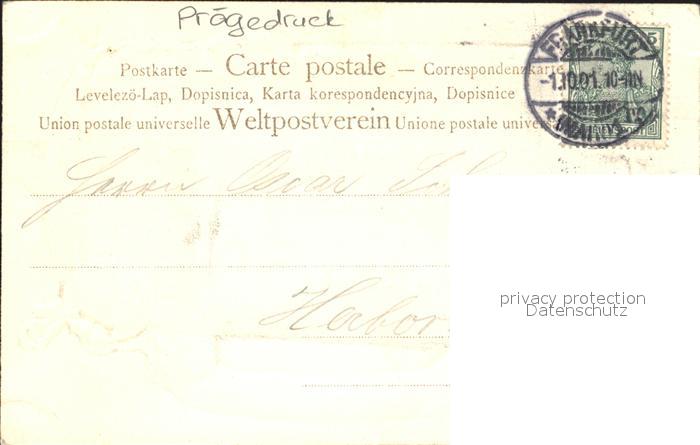 Prägedruck
Postkarte — Carte postale — Correspondenzkarte
Levelezö-Lap, Dopisnica, Karta korespondencyjna, Dopisnice
Union postale universelle Weltpostverein Unione postale univers
FRANKFURT
-1.10.01. 10-11N.
(MAIN)
5
Herrn Oscar
Herbor
privacy protection
Datenschutz